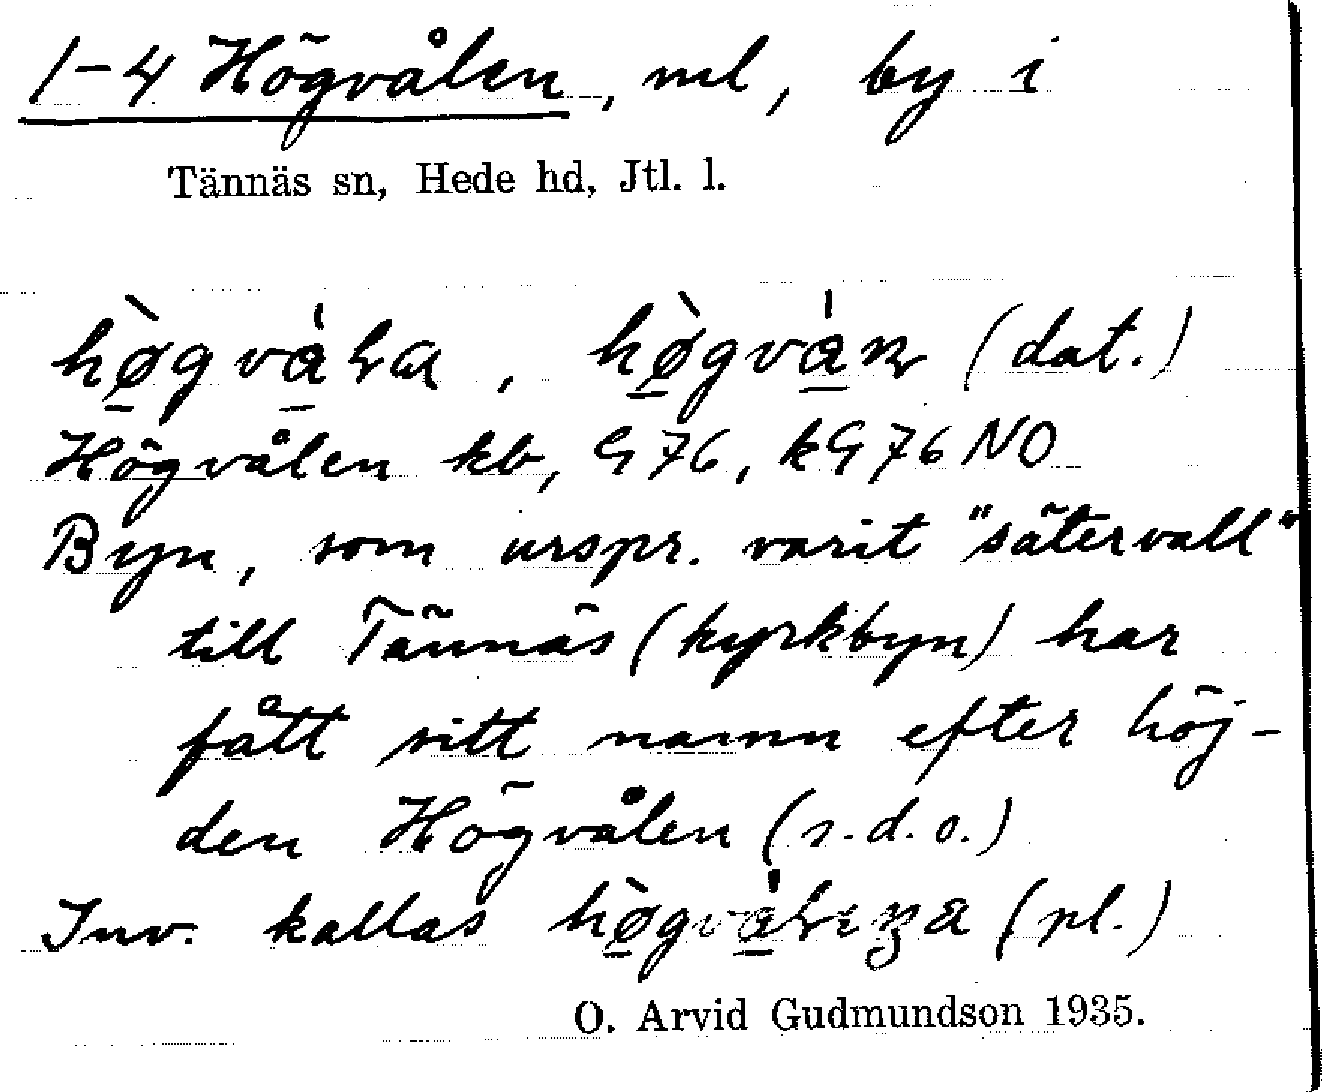 1-4 Högvålen, ml, by i
Tännäs sn, Hede hd, Jtl. l.
(dat.)
Högvålen kb, G76, kG76NO
Byn, som urspr. varit "sätervall"
till Tännäs (kyrkbyn) har
fått sitt namn efter höj-
den Högvålen (s.d.o.)
Inv. kallas (pl.)
O. Arvid Gudmundson 1935.